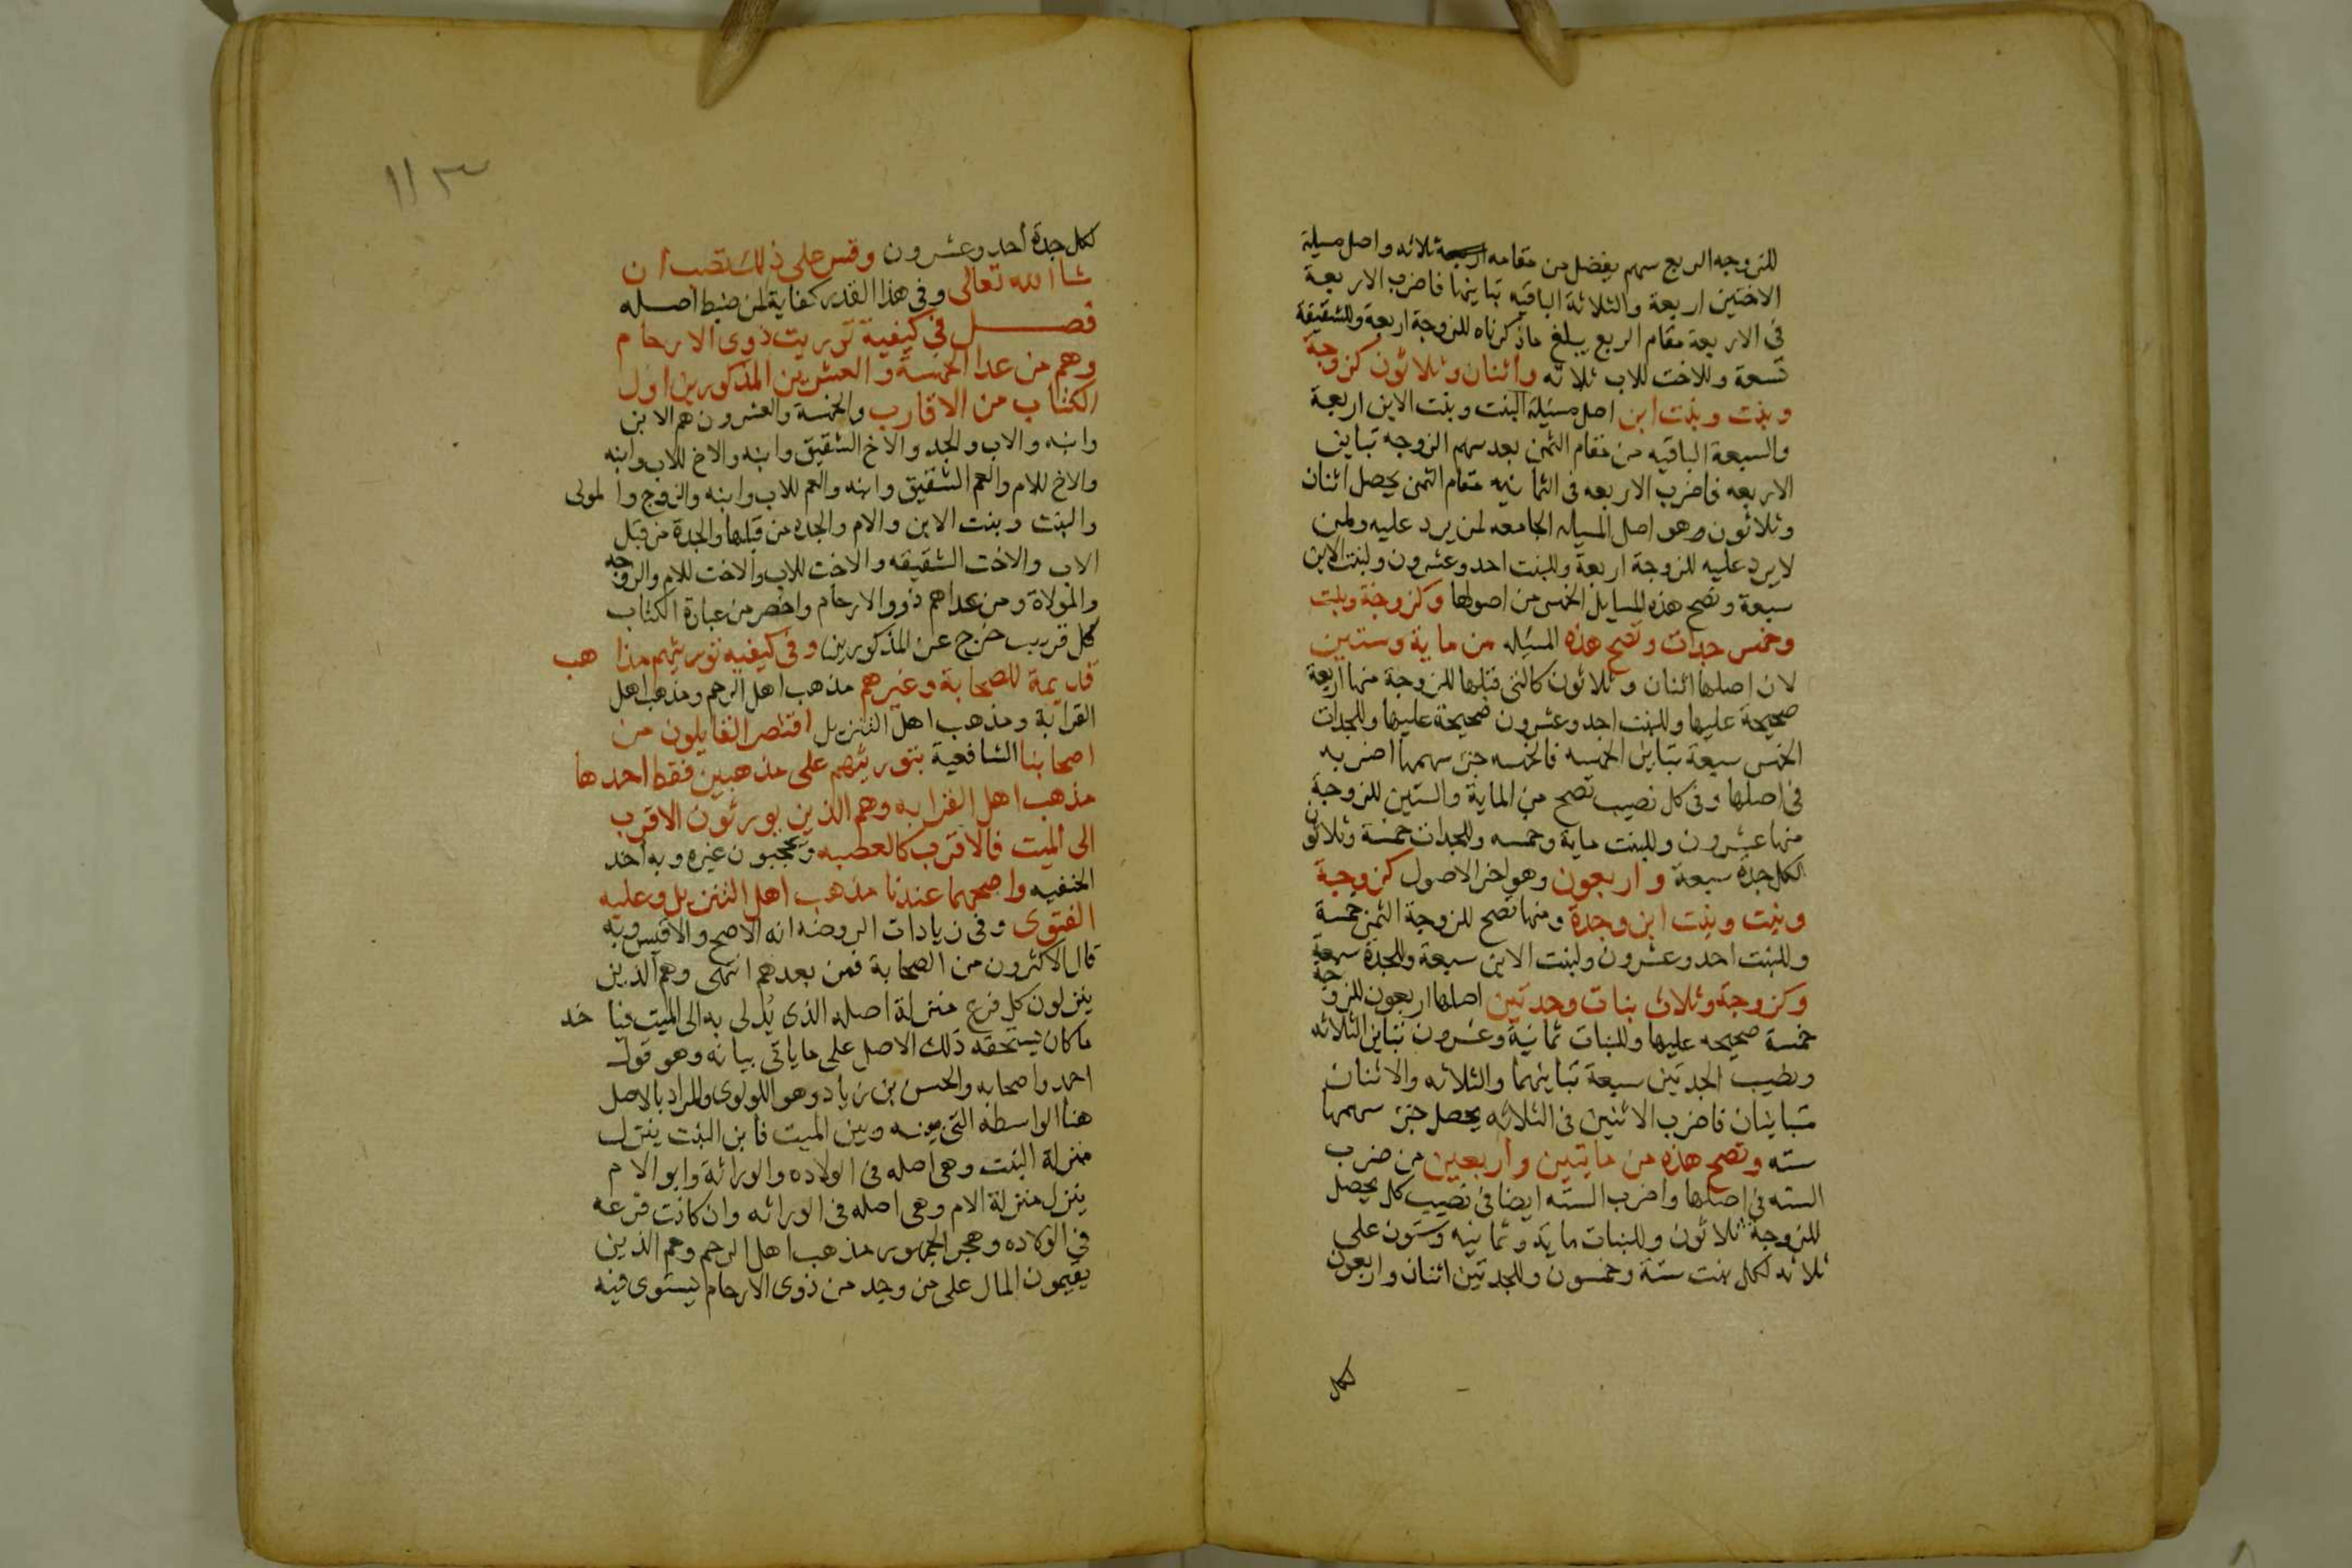 للزوجه الربع سهم يفضل من مقامه ثلاثه واصل مسيلة
الاختين اربعة والثلاثة الباقيه تباينها فاضرب الاربعة
فى الاربعة مقام الربع يبلغ ماذكرناه للزوجة اربعة وللشقيقة
تسعة وللاخت للاب ثلاثه واثنان وثلاثون كزوجة
وبنت وبنت ابن اصل مسئلة البنت وبنت الابن اربعة
والسبعة الباقيه من مقام الثمن بعد سهم الزوجه تباين
الاربعه فاضرب الاربعه فى الثمانيه مقام الثمن يحصل اثنان
وثلاثون وهو اصل المسيله الجامعه لمن يرد عليه ولمن
لا يرد عليه للزوجة اربعة وللبنت احد وعشرون ولبنت الابن
سبعة وتصح هذه المسايل الخمس من اصولها وكزوجة وبنت
وخمس جدات وتصح هذه المسئله من ماية وستين
لان اصلها اثنان وثلاثون كالتى قبلها للزوجة منها اربعة
صحيحة عليها وللبنت احد وعشرون صحيحة عليها وللجدات
الخمس سبعة تباين الخمسه فالخمسه جزء سهمها اضربه
فى اصلها وفى كل نصيب تصح من الماية والستين للزوجة
منها عشرون وللبنت ماية وخمسه وللجدات خمسة وثلاثون
لكل جدة سبعة واربعون وهو اخر الاصول كزوجة
وبنت وبنت ابن وجدة ومنها تصح للزوجة الثمن خمسة
وللبنت احد وعشرون ولبنت الابن سبعة وللجدة سبعة
وكزوجة وثلاث بنات وجدتين اصلها اربعون للزوجة
خمسة صحيحه عليها وللبنات ثمانية وعشرون تباين الثلاثه
ونصيب الجدتين سبعة تباينهما والثلاثه والاثنان
متباينان فاضرب الاثنين فى الثلاثه يحصل جزء سهمها
سته وتصح هذه من مايتين واربعين من ضرب
السته فى اصلها واضرب السته ايضا فى نصيب كل يحصل
للزوجة ثلاثون وللبنات ماية وثمانيه وستون على
ثلاثه لكل بنت ستة وخمسون وللجدتين اثنان واربعون
لكل
١١٣
لكل جدة أحد وعشرون وقس على ذلك تصب ان
شا الله تعالى وفى هذا القدر كفاية لمن ضبط اصله
فصل فى كيفية توريث ذوى الارحام
وهم من عدا الخمسة والعشرين المذكورين اول
الكتاب من الاقارب والخمسة والعشرون هم الابن
وابنه والاب والجد والاخ الشقيق وابنه والاخ للاب وابنه
والاخ للام والعم الشقيق وابنه والعم للاب وابنه والزوج والمولى
والبنت وبنت الابن والام والجدة من قبلها والجدة من قبل
الاب والاخت الشقيقه والاخت للاب والاخت للام والزوجه
والمولاة ومن عداهم ذوو الارحام واخصر من عبارة الكتاب
كل قريب خرج عن المذكورين وفى كيفيه توريثهم مذاهب
قديمة للصحابة وغيرهم مذهب اهل الرحم ومذهب اهل
القرابة ومذهب اهل التنزيل اقتصر القايلون من
اصحابنا الشافعية بتوريثهم على مذهبين فقط احدها
مذهب اهل القرابه وهم الذين يورثون الاقرب
الى الميت فالاقرب كالعصبه ويحجبون غيره وبه اخد
الحنفيه واصحهما عندنا مذهب اهل التنزيل وعليه
الفتوى وفى زيادات الروضه انه الاصح والاقيس وبه
قال الاكثرون من الصحابة فمن بعدهم انتهى وهم الذين
ينزلون كل فرع منزلة اصله الذى يُدلى به الى الميت فياخد
ماكان يستحقه ذلك الاصل على ماياتى بيانه وهو قول
احمد واصحابه والحسن بن زياد وهو اللولوى والمراد بالاصل
هنا الواسطه التى بينه وبين الميت فابن البنت ينزل
منزلة البنت وهى اصله فى الولاده والوراثة وابو الام
ينزل منزلة الام وهى اصله فى الوراثه وان كانت فرعه
فى الولاده وهجر الجمهور مذهب اهل الرحم وهم الذين
يقسمون المال على من وجد من ذوى الارحام يستوى فيه